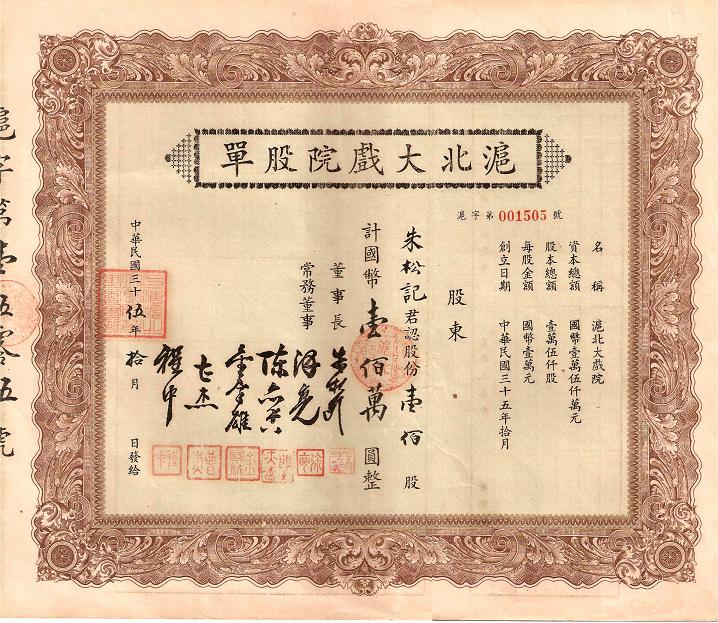 滬北大戲院股單
滬字第001505號
名稱 滬北大戲院
資本總額 國幣壹萬伍仟萬元
股本總額 壹萬伍仟股
每股金額 國幣壹萬元
創立日期 中華民國三十五年拾月
股東
朱松記君認股份壹佰股
計國幣壹佰萬圓整
董事長
常務董事
中華民國三十伍年拾月 日發給
滬字第壹伍零伍號